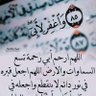 وَٱغۡفِرۡ لِأَبِيٓ
اللهم ارحم أبي رحمة تسع
السماوات والأرض اللهم اجعل قبره
في نور دائم لا ينقطع واجعله في